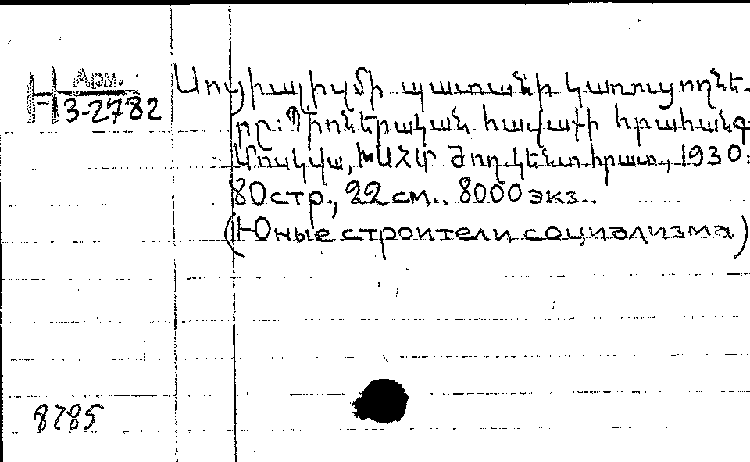 Арм.
H 3-2782
Սոցիալիզմի պատանի կառուցողնե-
րը: Պիոներական հավաքի հրահանգ
Մոսկվա, ԽՍՀՄ Ժող. կենտ հրատ., 1930.
80 стр., 22 см.. 8000 экз..
(Юные строители социализма)
8785